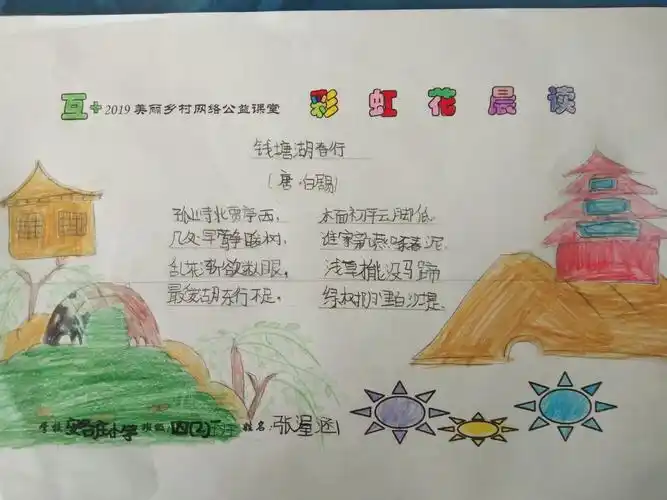 互+2019美丽乡村网络公益课堂 彩虹花晨读
钱塘湖春行
(唐·白居易)
孤山寺北贾亭西, 水面初平云脚低。
几处早莺争暖树, 谁家新燕啄春泥。
乱花渐欲迷人眼, 浅草才能没马蹄
最爱湖东行不足, 绿杨阴里白沙堤。
学校: 小学 班级: 姓名: 张渥涵